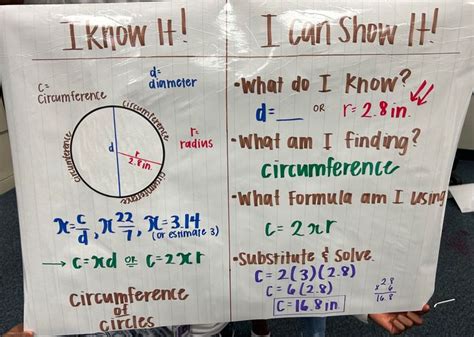 I Know It!
C=
Circumference
d=
diameter
circumference
circumference
circumference
circumference
d
r
2.8in.
r=
radius
π=c/d, π 22/7, π=3.14
(or estimate 3)
→ C=πd or C=2πr
circumference
of
circles
I can Show It!
•What do I know?
d=___ OR r=2.8in.
•What am I finding?
circumference
•What Formula am I using
C=2πr
•Substitute & Solve.
C=2(3)(2.8)
C=6(2.8)
C=16.8in.
2.8
x 6
16.8